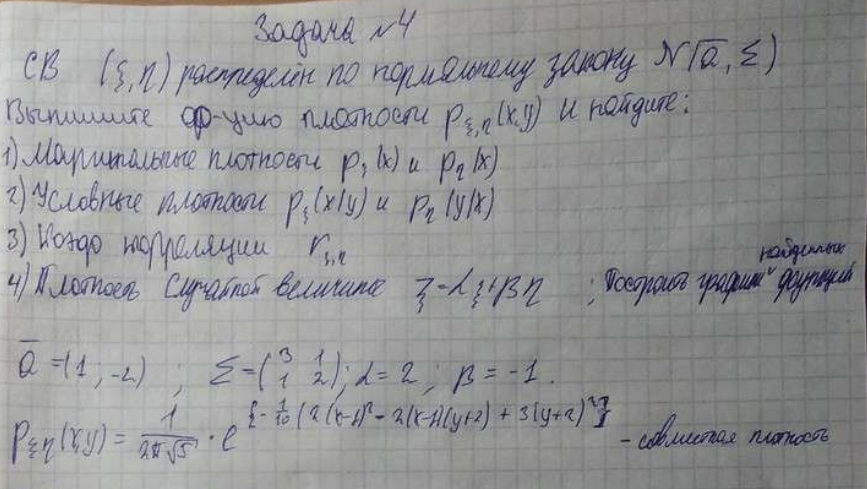 Задача №4
СВ (ξ,η) распределён по нормальному закону N(a̅, Σ)
Выпишите ф-цию плотности p_{ξ,η}(x,y) и найдите:
1) Маргинальные плотности p_ξ(x) и p_η(x)
2) Условные плотности p_ξ(x|y) и p_η(y|x)
3) Коэфф корреляции r_{ξ,η}
4) Плотность Случайной величины ζ=αξ+βη ; Построить графики найденных функций
a̅ = (1, -2) ; Σ = (3 1 1 2); α = 2 ; β = -1.
p_{ξη}(x,y) = 1/(2π√5) · e^{-1/10 (2(x-1)²-2(x-1)(y+2)+3(y+2)²)} - совместная плотность